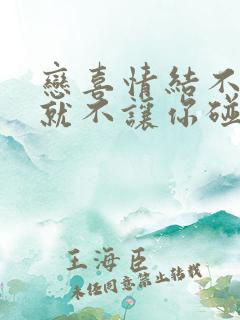 戀喜情結不
就不讓你碰
王海臣
未经同意禁止转载